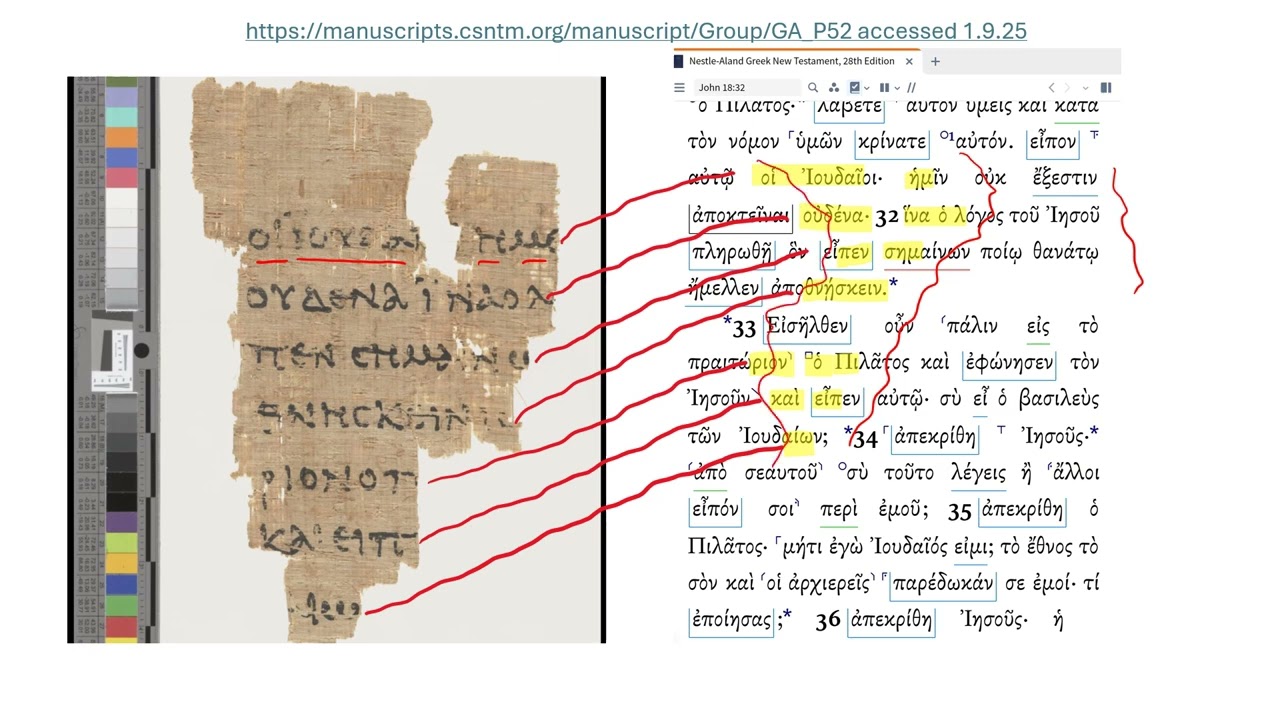 https://manuscripts.csntm.org/manuscript/Group/GA_P52 accessed 1.9.25
ΟΙ ΙΟΥΔΑΙ ΗΜΕ
ΟΥΔΕΝΑ ΪΝΑΟΛ
ΠΕΝ ϹΗΜΑΙΝΩ
ΘΝΗϹΚΕΙΝ ΙϹ
ΡΙΟΝ Ο Π
ΚΑΙ ΕΙΠ
ΑΙΩ
Nestle-Aland Greek New Testament, 28th Edition
John 18:32
ὁ Πιλᾶτος· λάβετε αὐτὸν ὑμεῖς καὶ κατὰ
τὸν νόμον ⸀ὑμῶν κρίνατε ⸰¹αὐτόν. εἶπον ⸆
αὐτῷ οἱ Ἰουδαῖοι· ἡμῖν οὐκ ἔξεστιν
ἀποκτεῖναι οὐδένα· 32 ἵνα ὁ λόγος τοῦ Ἰησοῦ
πληρωθῇ ὃν εἶπεν σημαίνων ποίῳ θανάτῳ
ἤμελλεν ἀποθνῄσκειν.*
*33 Εἰσῆλθεν οὖν ⸂πάλιν εἰς τὸ
πραιτώριον⸃ ⸋ὁ Πιλᾶτος καὶ ἐφώνησεν τὸν
Ἰησοῦν⸌ καὶ εἶπεν αὐτῷ· σὺ εἶ ὁ βασιλεὺς
τῶν Ἰουδαίων; *34 ⸀ἀπεκρίθη ⸆ Ἰησοῦς·*
⸂ἀπὸ σεαυτοῦ⸃ ⸰σὺ τοῦτο λέγεις ἢ ⸂ἄλλοι
εἶπόν σοι⸃ περὶ ἐμοῦ; 35 ἀπεκρίθη ὁ
Πιλᾶτος· ⸀μήτι ἐγὼ Ἰουδαῖός εἰμι; τὸ ἔθνος τὸ
σὸν καὶ ⸂οἱ ἀρχιερεῖς⸃ ⸁παρέδωκάν σε ἐμοί· τί
ἐποίησας;* 36 ἀπεκρίθη Ἰησοῦς· ἡ